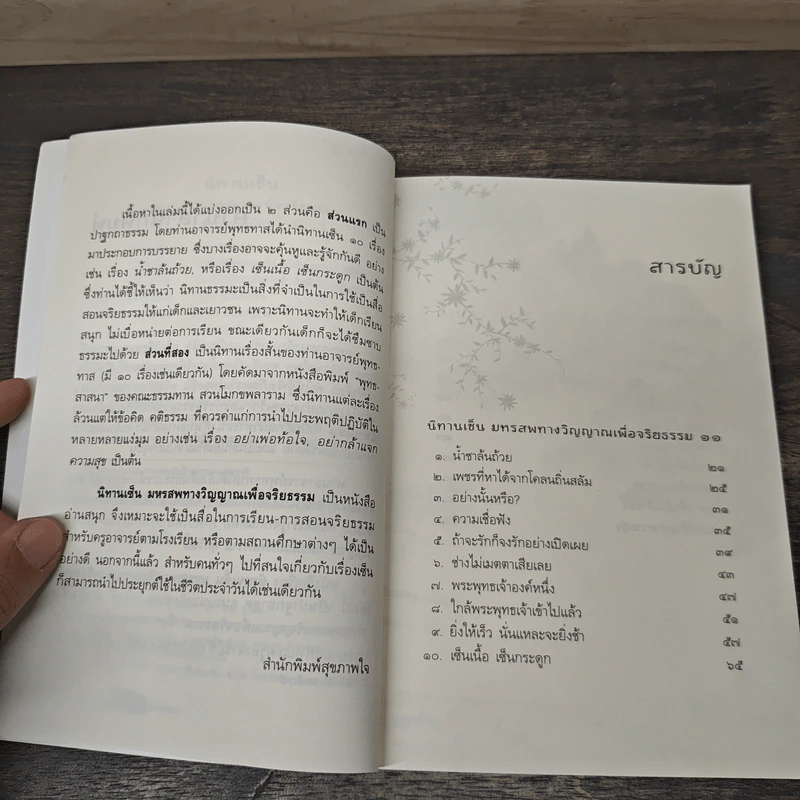 เนื้อหาในเล่มนี้ได้แบ่งออกเป็น ๒ ส่วนคือ ส่วนแรก เป็น
ปาฐกถาธรรม โดยท่านอาจารย์พุทธทาสได้นำนิทานเซ็น ๑๐ เรื่อง
มาประกอบการบรรยาย ซึ่งบางเรื่องอาจจะคุ้นหูและรู้จักกันดี อย่าง
เช่น เรื่อง น้ำชาล้นถ้วย, หรือเรื่อง เซ็นเนื้อ เซ็นกระดูก เป็นต้น
ซึ่งท่านได้ชี้ให้เห็นว่า นิทานธรรมะเป็นสิ่งที่จำเป็นในการใช้เป็นสื่อ
สอนจริยธรรมให้แก่เด็กและเยาวชน เพราะนิทานจะทำให้เด็กเรียน
สนุก ไม่เบื่อหน่ายต่อการเรียน ขณะเดียวกันเด็กก็จะได้ซึมซาบ
ธรรมะไปด้วย ส่วนที่สอง เป็นนิทานเรื่องสั้นของท่านอาจารย์พุทธ-
ทาส (มี ๑๐ เรื่องเช่นเดียวกัน) โดยคัดมาจากหนังสือพิมพ์ "พุทธ-
สาสนา" ของคณะธรรมทาน สวนโมกขพลาราม ซึ่งนิทานแต่ละเรื่อง
ล้วนแต่ให้ข้อคิด คติธรรม ที่ควรค่าแก่การนำไปประพฤติปฏิบัติใน
หลายหลายแง่มุม อย่างเช่น เรื่อง อย่าเพ่อท้อใจ, อย่ากล้าแจก
ความสุข เป็นต้น
นิทานเซ็น มหรสพทางวิญญาณเพื่อจริยธรรม เป็นหนังสือ
อ่านสนุก จึงเหมาะจะใช้เป็นสื่อในการเรียน-การสอนจริยธรรม
สำหรับครูอาจารย์ตามโรงเรียน หรือตามสถานศึกษาต่างๆ ได้เป็น
อย่างดี นอกจากนี้แล้ว สำหรับคนทั่วๆ ไปที่สนใจเกี่ยวกับเรื่องเซ็น
ก็สามารถนำไปประยุกต์ใช้ในชีวิตประจำวันได้เช่นเดียวกัน
สำนักพิมพ์สุขภาพใจ
สารบัญ
นิทานเซ็น มหรสพทางวิญญาณเพื่อจริยธรรม ๑๑
๑. น้ำชาล้นถ้วย ๒๑
๒. เพชรที่หาได้จากโคลนถิ่นสลัม ๒๕
๓. อย่างนั้นหรือ? ๓๑
๔. ความเชื่อฟัง ๓๕
๕. ถ้าจะรักก็จงรักอย่างเปิดเผย ๓๙
๖. ช่างไม่เมตตาเสียเลย ๔๓
๗. พระพุทธเจ้าองค์หนึ่ง ๔๗
๘. ใกล้พระพุทธเจ้าเข้าไปแล้ว ๕๑
๙. ยิ่งให้เร็ว นั่นแหละจะยิ่งช้า ๕๗
๑๐. เซ็นเนื้อ เซ็นกระดูก ๖๕